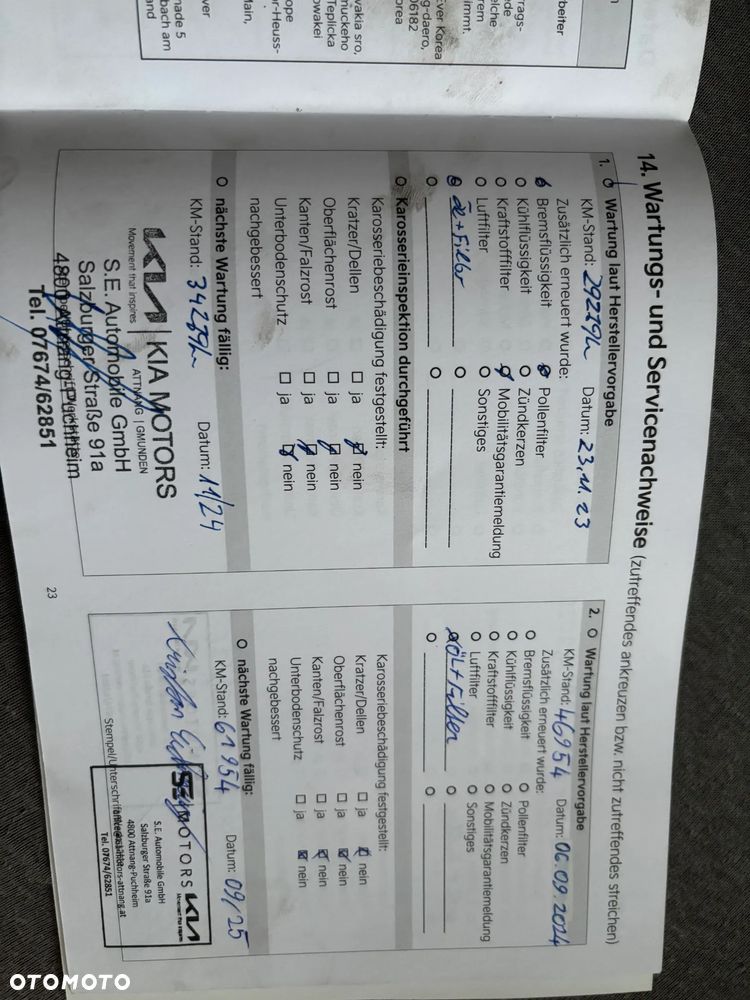 beiter
trags-
nde
elche
erem
immt.
ever Korea
g-daero,
06182
orea
vakia sro,
Teplicka
owakei
ope
r-Heuss-
lain,
ver
nade 5
bach am
and
14. Wartungs- und Servicenachweise (zutreffendes ankreuzen bzw. nicht zutreffendes streichen)
1. Wartung laut Herstellervorgabe
KM-Stand: 29279h Datum: 23.11.23
Zusätzlich erneuert wurde:
Bremsflüssigkeit Pollenfilter
Kühlflüssigkeit Zündkerzen
Kraftstofffilter Mobilitätsgarantiemeldung
Luftfilter Sonstiges
Öl + Filter
Karosserieinspektion durchgeführt
Karosseriebeschädigung festgestellt:
Kratzer/Dellen ja nein
Oberflächenrost ja nein
Kanten/Falzrost ja nein
Unterbodenschutz ja nein
nachgebessert
nächste Wartung fällig:
KM-Stand: 34279h Datum: 11/24
KIA | KIA MOTORS
Movement that inspires ATTNANG | GMUNDEN
S.E. Automobile GmbH
Salzburger Straße 91a
4800 Attnang-Puchheim
Tel. 07674/62851
23
2. Wartung laut Herstellervorgabe
KM-Stand: 46954 Datum: 06.09.2024
Zusätzlich erneuert wurde:
Bremsflüssigkeit Pollenfilter
Kühlflüssigkeit Zündkerzen
Kraftstofffilter Mobilitätsgarantiemeldung
Luftfilter Sonstiges
Öl + Filter
Karosseriebeschädigung festgestellt:
Kratzer/Dellen ja nein
Oberflächenrost ja nein
Kanten/Falzrost ja nein
Unterbodenschutz ja nein
nachgebessert
nächste Wartung fällig:
KM-Stand: 61954 Datum: 09/25
SE MOTORS KIA
S.E. Automobile GmbH
Salzburger Straße 91a
4800 Attnang-Puchheim
Tel. 07674/62851
Stempel/Unterschrift
OTOMOTO